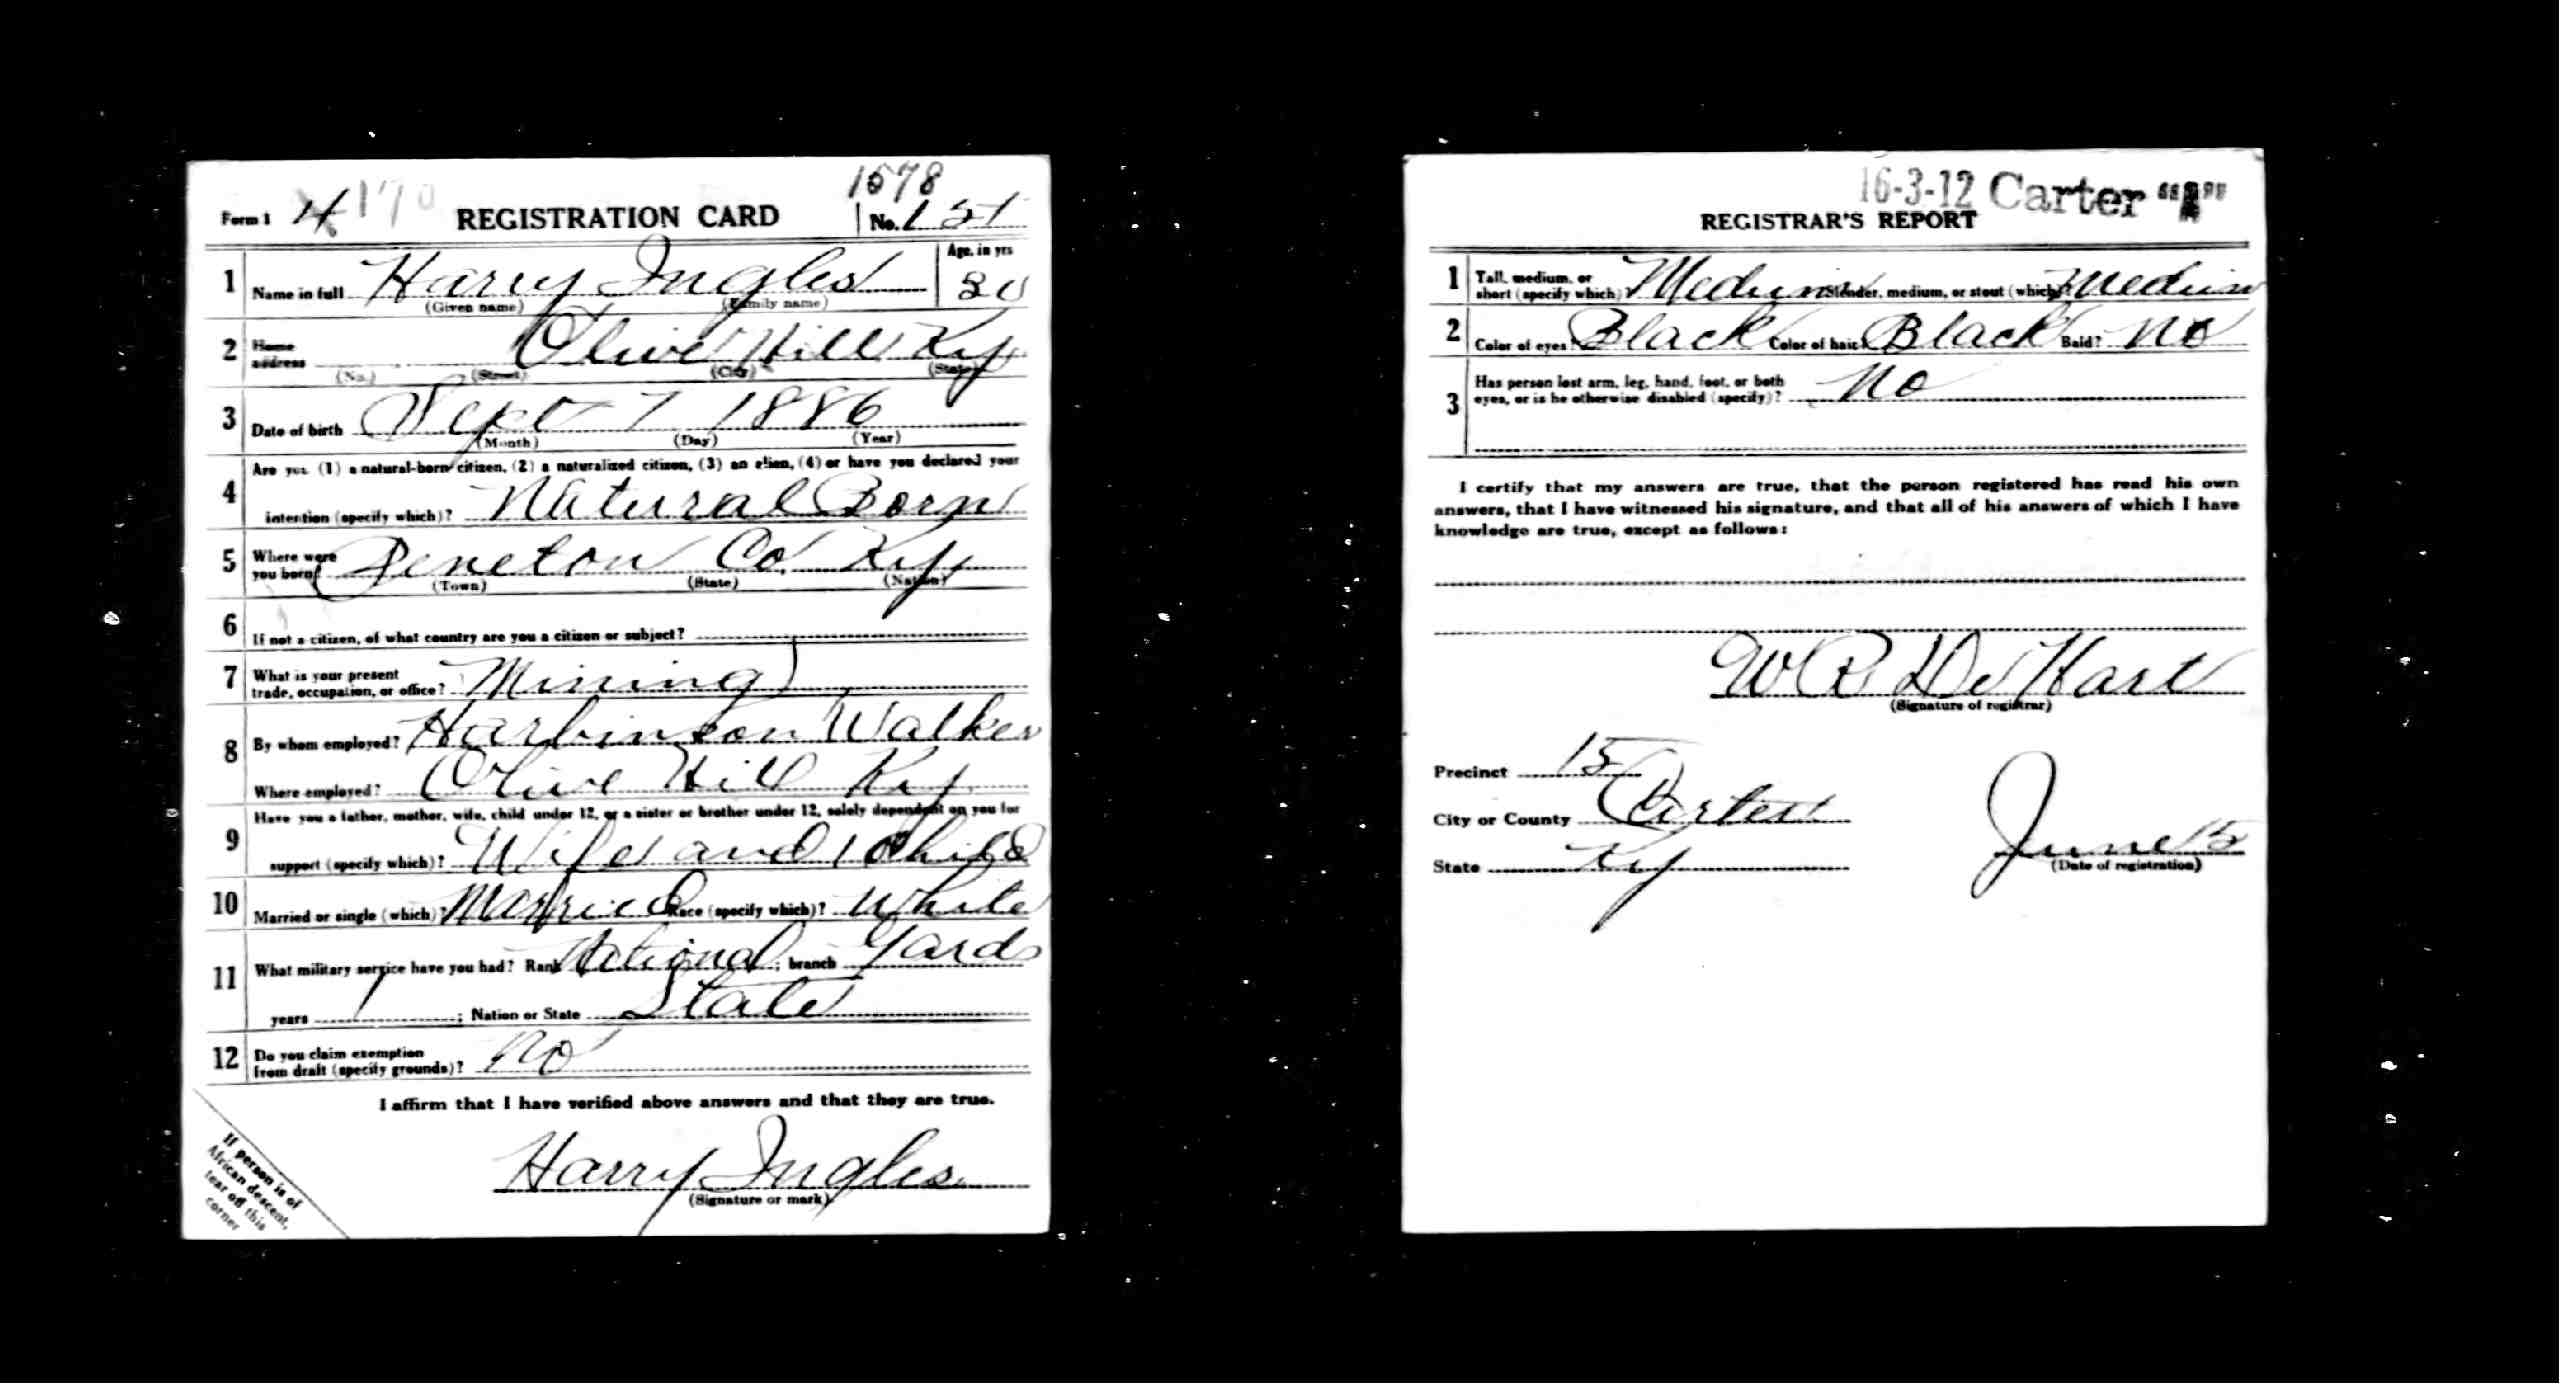 Form 1 170 REGISTRATION CARD 1578 No.
1 Name in full Harry Ingles Age, in yrs 30
(Given name) (Family name)
2 Home address Olive Hill Ky
(No.) (Street) (City) (State)
3 Date of birth Sept 7 1886
(Month) (Day) (Year)
4 Are you (1) a natural-born citizen, (2) a naturalized citizen, (3) an alien, (4) or have you declared your
intention (specify which)? Natural Born
5 Where were you born? Co Ky
(Town) (State) (Nation)
6 If not a citizen, of what country are you a citizen or subject?
7 What is your present trade, occupation, or office? Mining
8 By whom employed? Harbinson Walker
Where employed? Olive Hill Ky
9 Have you a father, mother, wife, child under 12, or a sister or brother under 12, solely dependent on you for
support (specify which)? Wife and 1 Child
10 Married or single (which)? Married Race (specify which)? White
11 What military service have you had? Rank National ; branch Gards
years 1 ; Nation or State State
12 Do you claim exemption from draft (specify grounds)? No
I affirm that I have verified above answers and that they are true.
Harry Ingles
(Signature or mark)
If person is of
African descent,
tear off this
corner
16-3-12 Carter "A"
REGISTRAR'S REPORT
1 Tall, medium, or short (specify which)? Medium Slender, medium, or stout (which)? Medium
2 Color of eyes? Black Color of hair? Black Bald? No
3 Has person lost arm, leg, hand, foot, or both
eyes, or is he otherwise disabled (specify)? No
I certify that my answers are true, that the person registered has read his own
answers, that I have witnessed his signature, and that all of his answers of which I have
knowledge are true, except as follows:
W R DeHart
(Signature of registrar)
Precinct 15
City or County Carter
State Ky
June 15
(Date of registration)